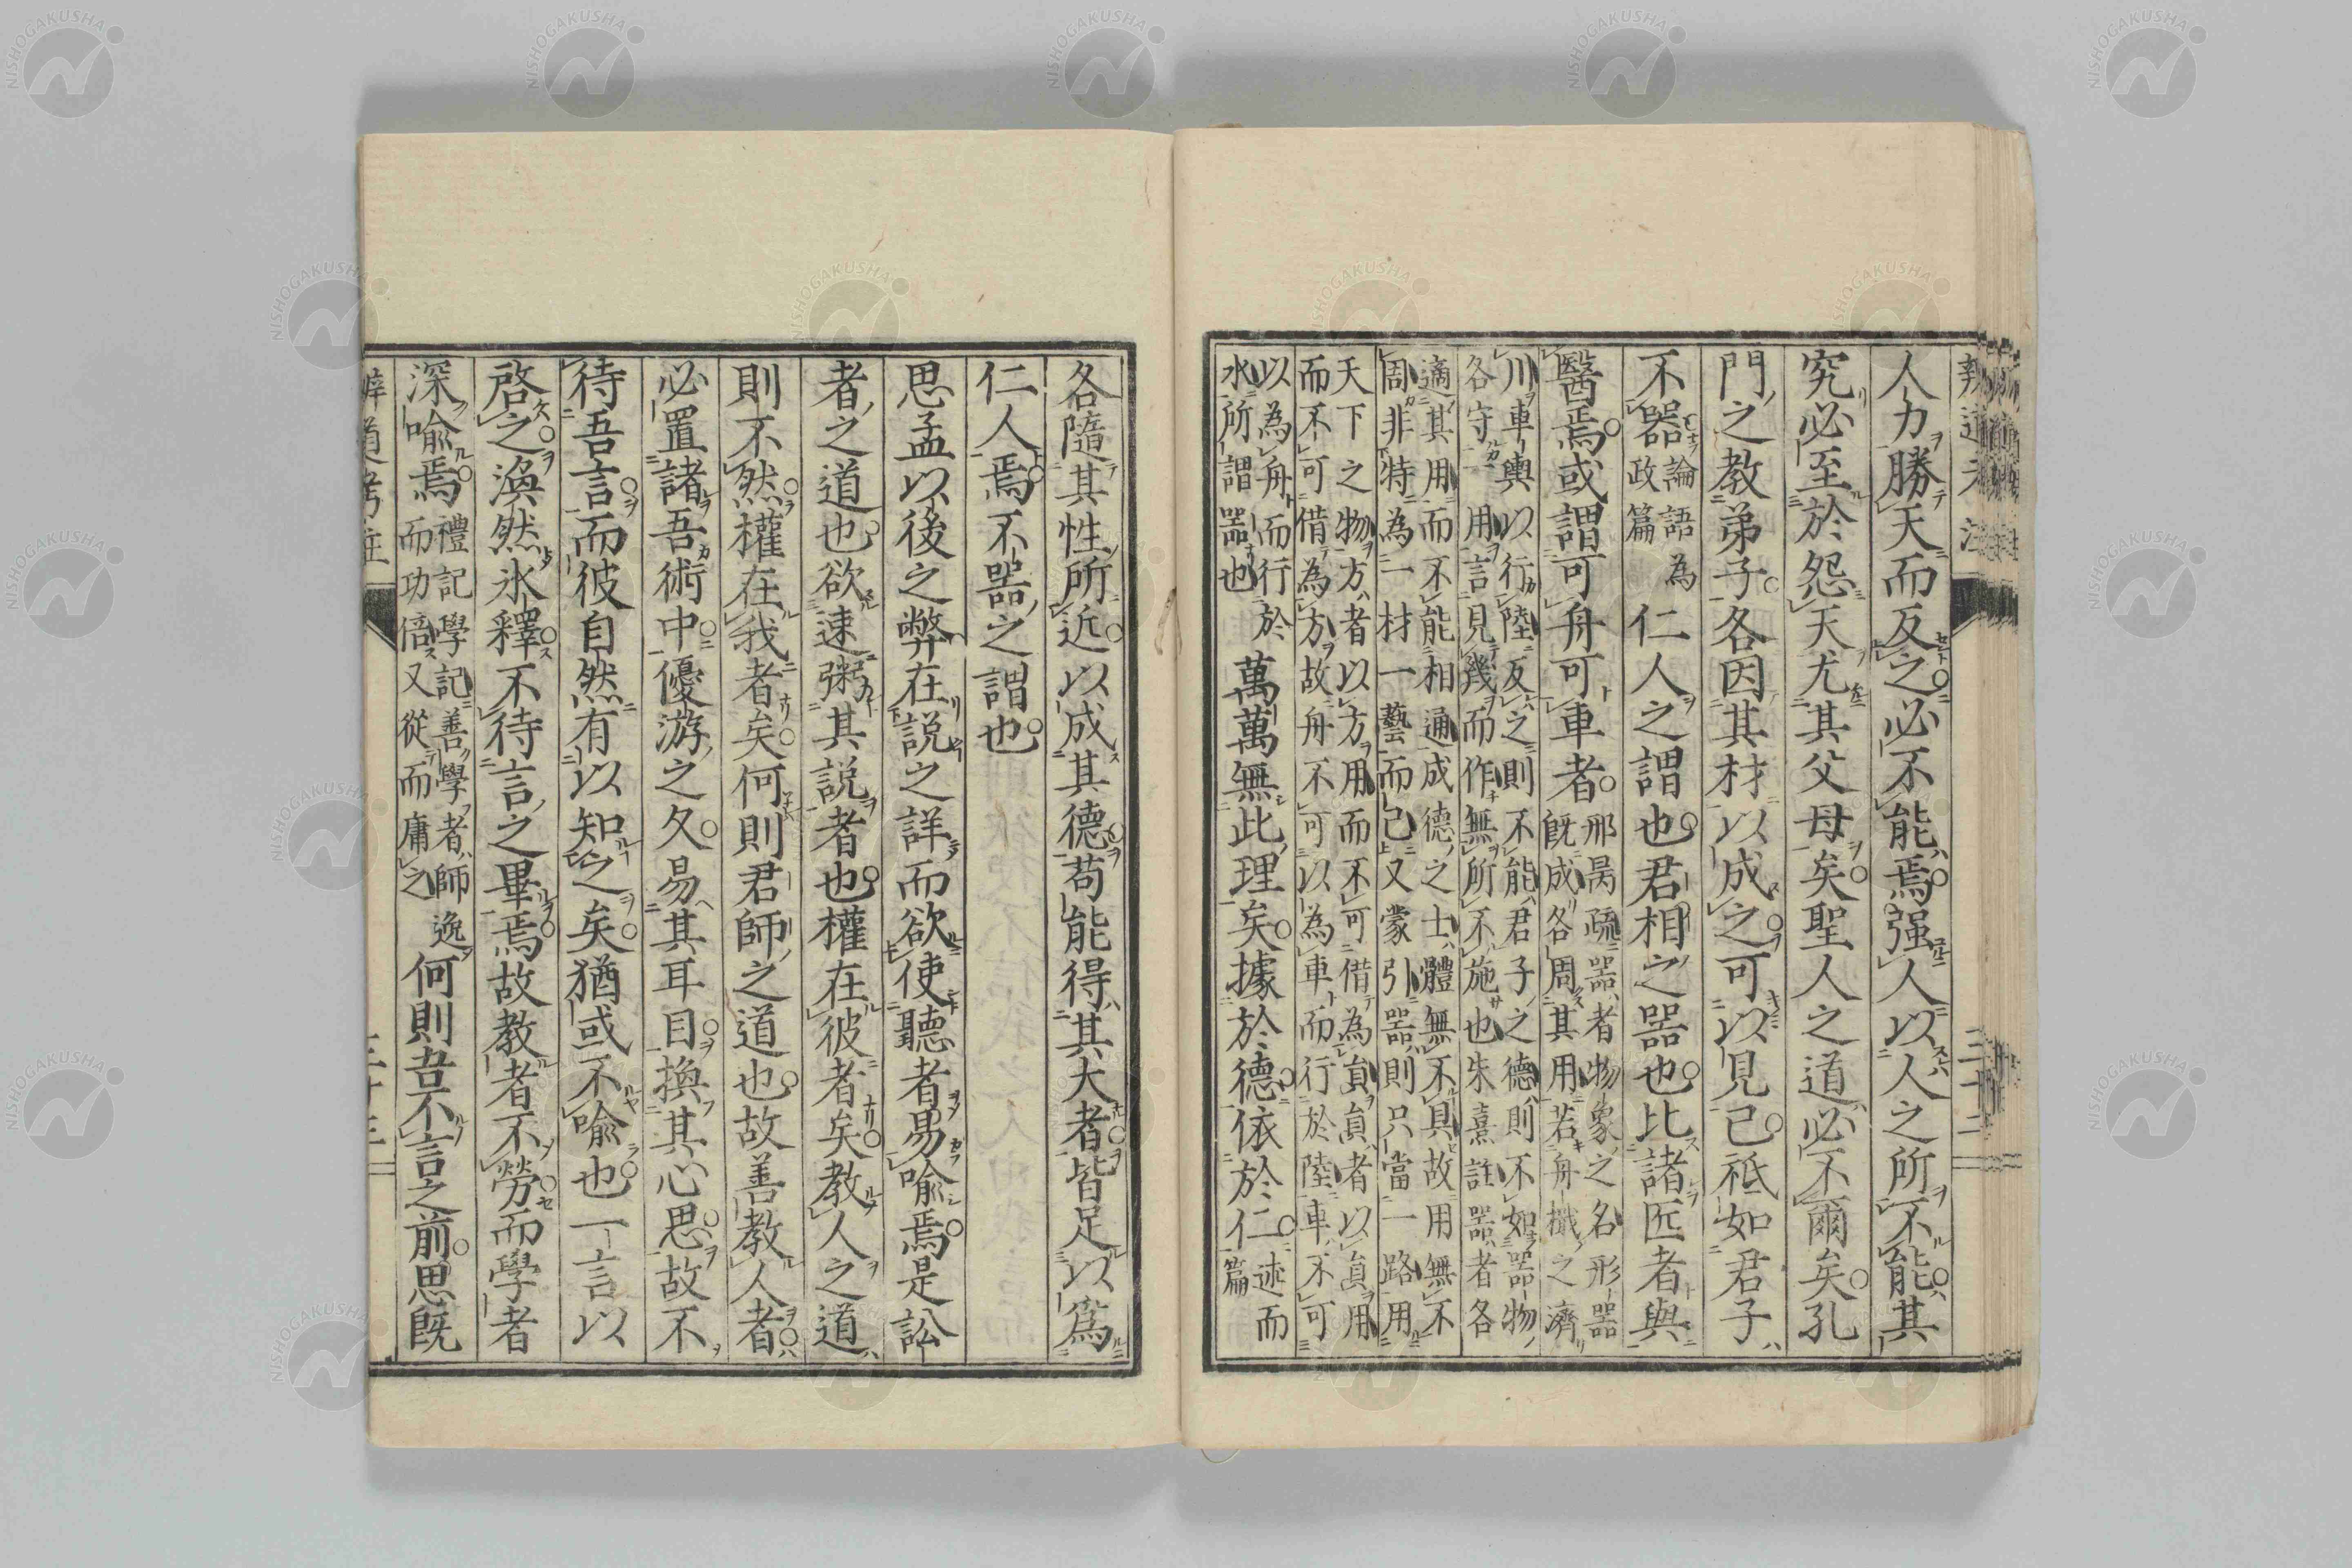 人力勝天而反之必不能焉强人以人之所不能其
究必至於怨天尤其父母矣聖人之道必不爾矣孔
門之教弟子各因其材以成之可以見已祗如君子
不器
論語為
政篇
仁人之謂也君相之器也比諸匠者與
醫焉或謂可舟可車者
邢昺疏器者物象之名形器
既成各周其用若舟檝之濟
川車輿以行陸反之則不能君子之德則不如器物
各守一用言見幾而作無所不施也朱熹註器者各
適其用而不能相通成德之士體無不具故用無不
周非特為一材一藝而已又蒙引器則只當一路用
天下之物方者以方用而不可借為員員者以員用
而不可借為方故舟不可以為車而行於陸車不可
以為舟而行於
水所謂器也
萬萬無此理矣據於德依於仁
述而
篇
各隨其性所近以成其德苟能得其大者皆足以爲
仁人焉不器之謂也
思孟以後之弊在說之詳而欲使聽者易喩焉是訟
者之道也欲速粥其說者也權在彼者矣教人之道
則不然權在我者矣何則君師之道也故善教人者
必置諸吾術中優游之久易其耳目換其心思故不
待吾言而彼自然有以知之矣猶或不喩也一言以
啓之渙然氷釋不待言之畢焉故教者不勞而學者
深喩焉
禮記學記善學者師逸
而功倍又從而庸之
何則吾不言之前思既
辨道考註
三十三
三十二
NISHOGAKUSHA